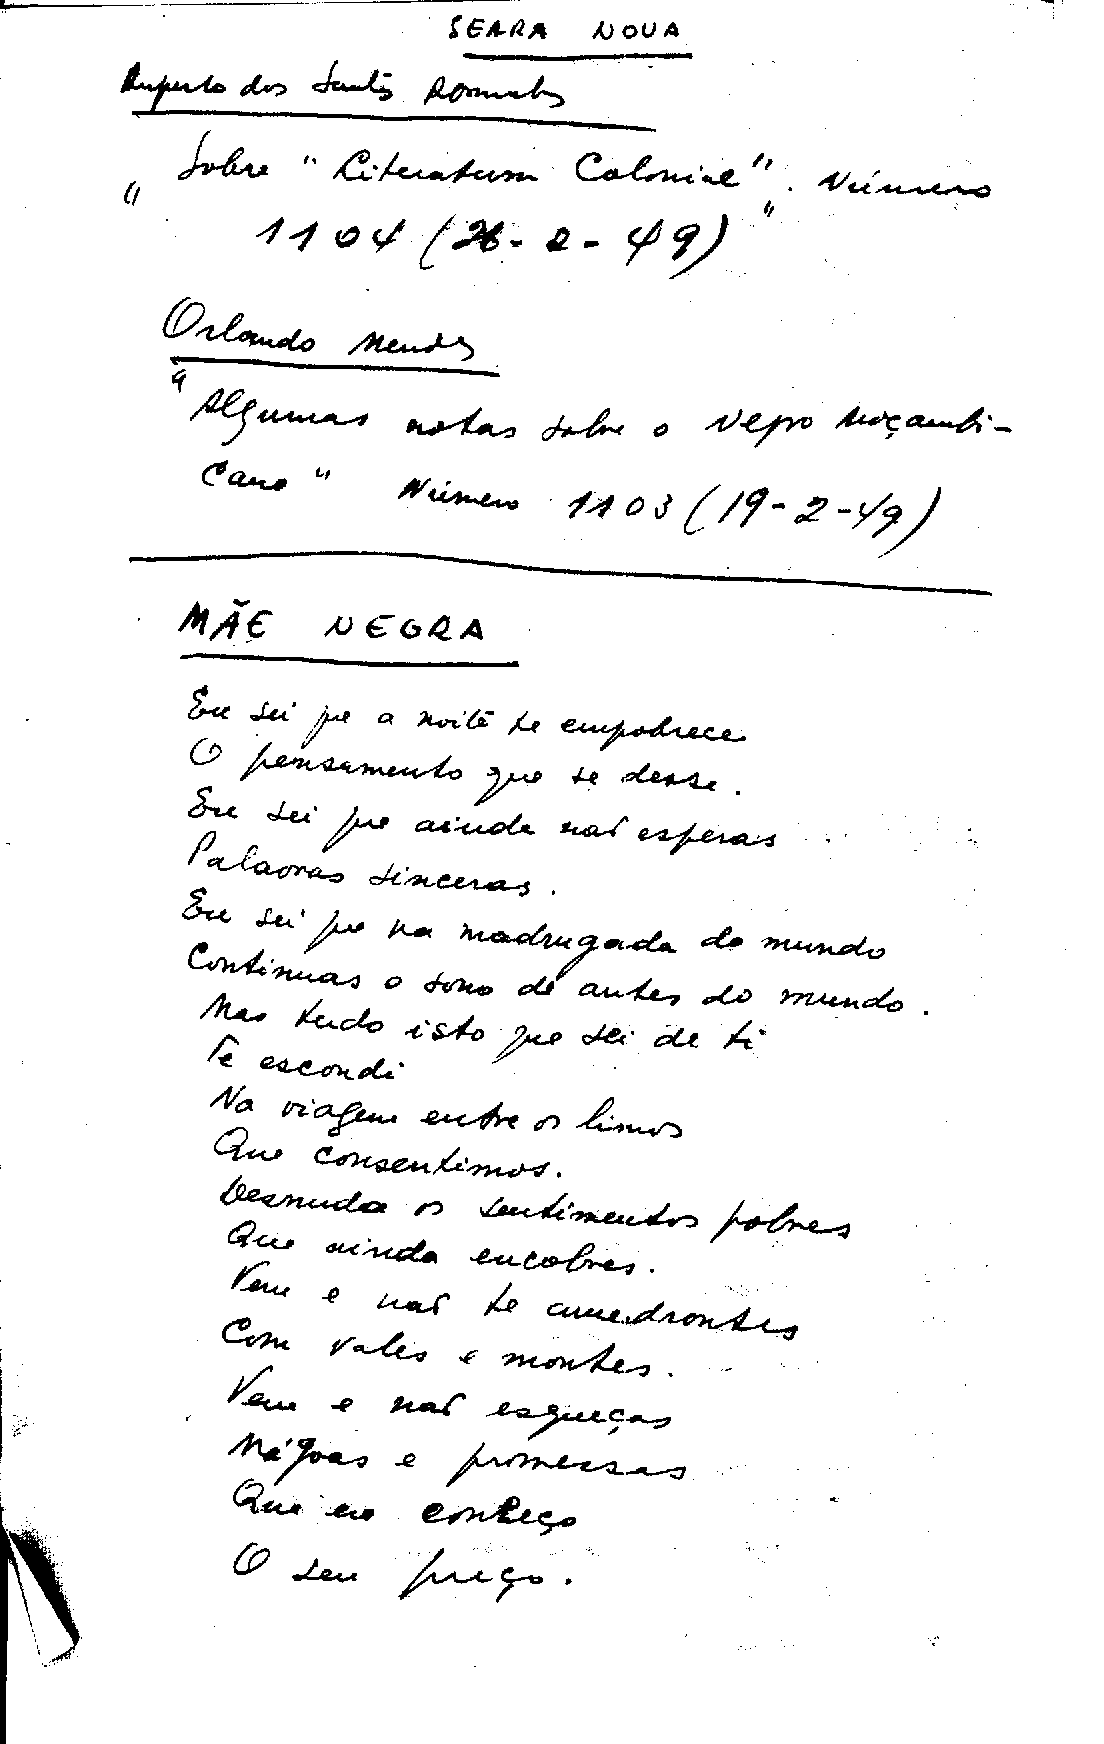 SEARA NOVA
Ruperto dos Santos
" Sobre "Literatura Colonial". Número
1104 (26-2-49) "
Orlando Mendes
" Algumas notas sobre o negro moçambi-
cano " Número 1103 (19-2-49)
MÃE NEGRA
Eu sei que a noite te empobrece
O pensamento que se desse.
Eu sei que ainda não esperas
Palavras sinceras.
Eu sei que na madrugada do mundo
Continuas o sono de antes do mundo.
Mas tudo isto que sei de ti
Te escondi
Na viagem entre os limos
Que consentimos.
Desnuda os sentimentos pobres
Que ainda encobres.
Vem e não te amedrontes
Com vales e montes.
Vem e não esqueças
Mágoas e promessas
Que eu conheço
O seu preço.